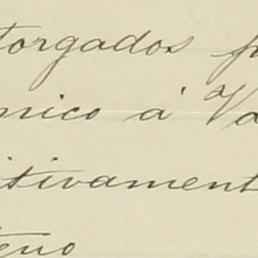 torgados p
nico á Va
itivament
teno